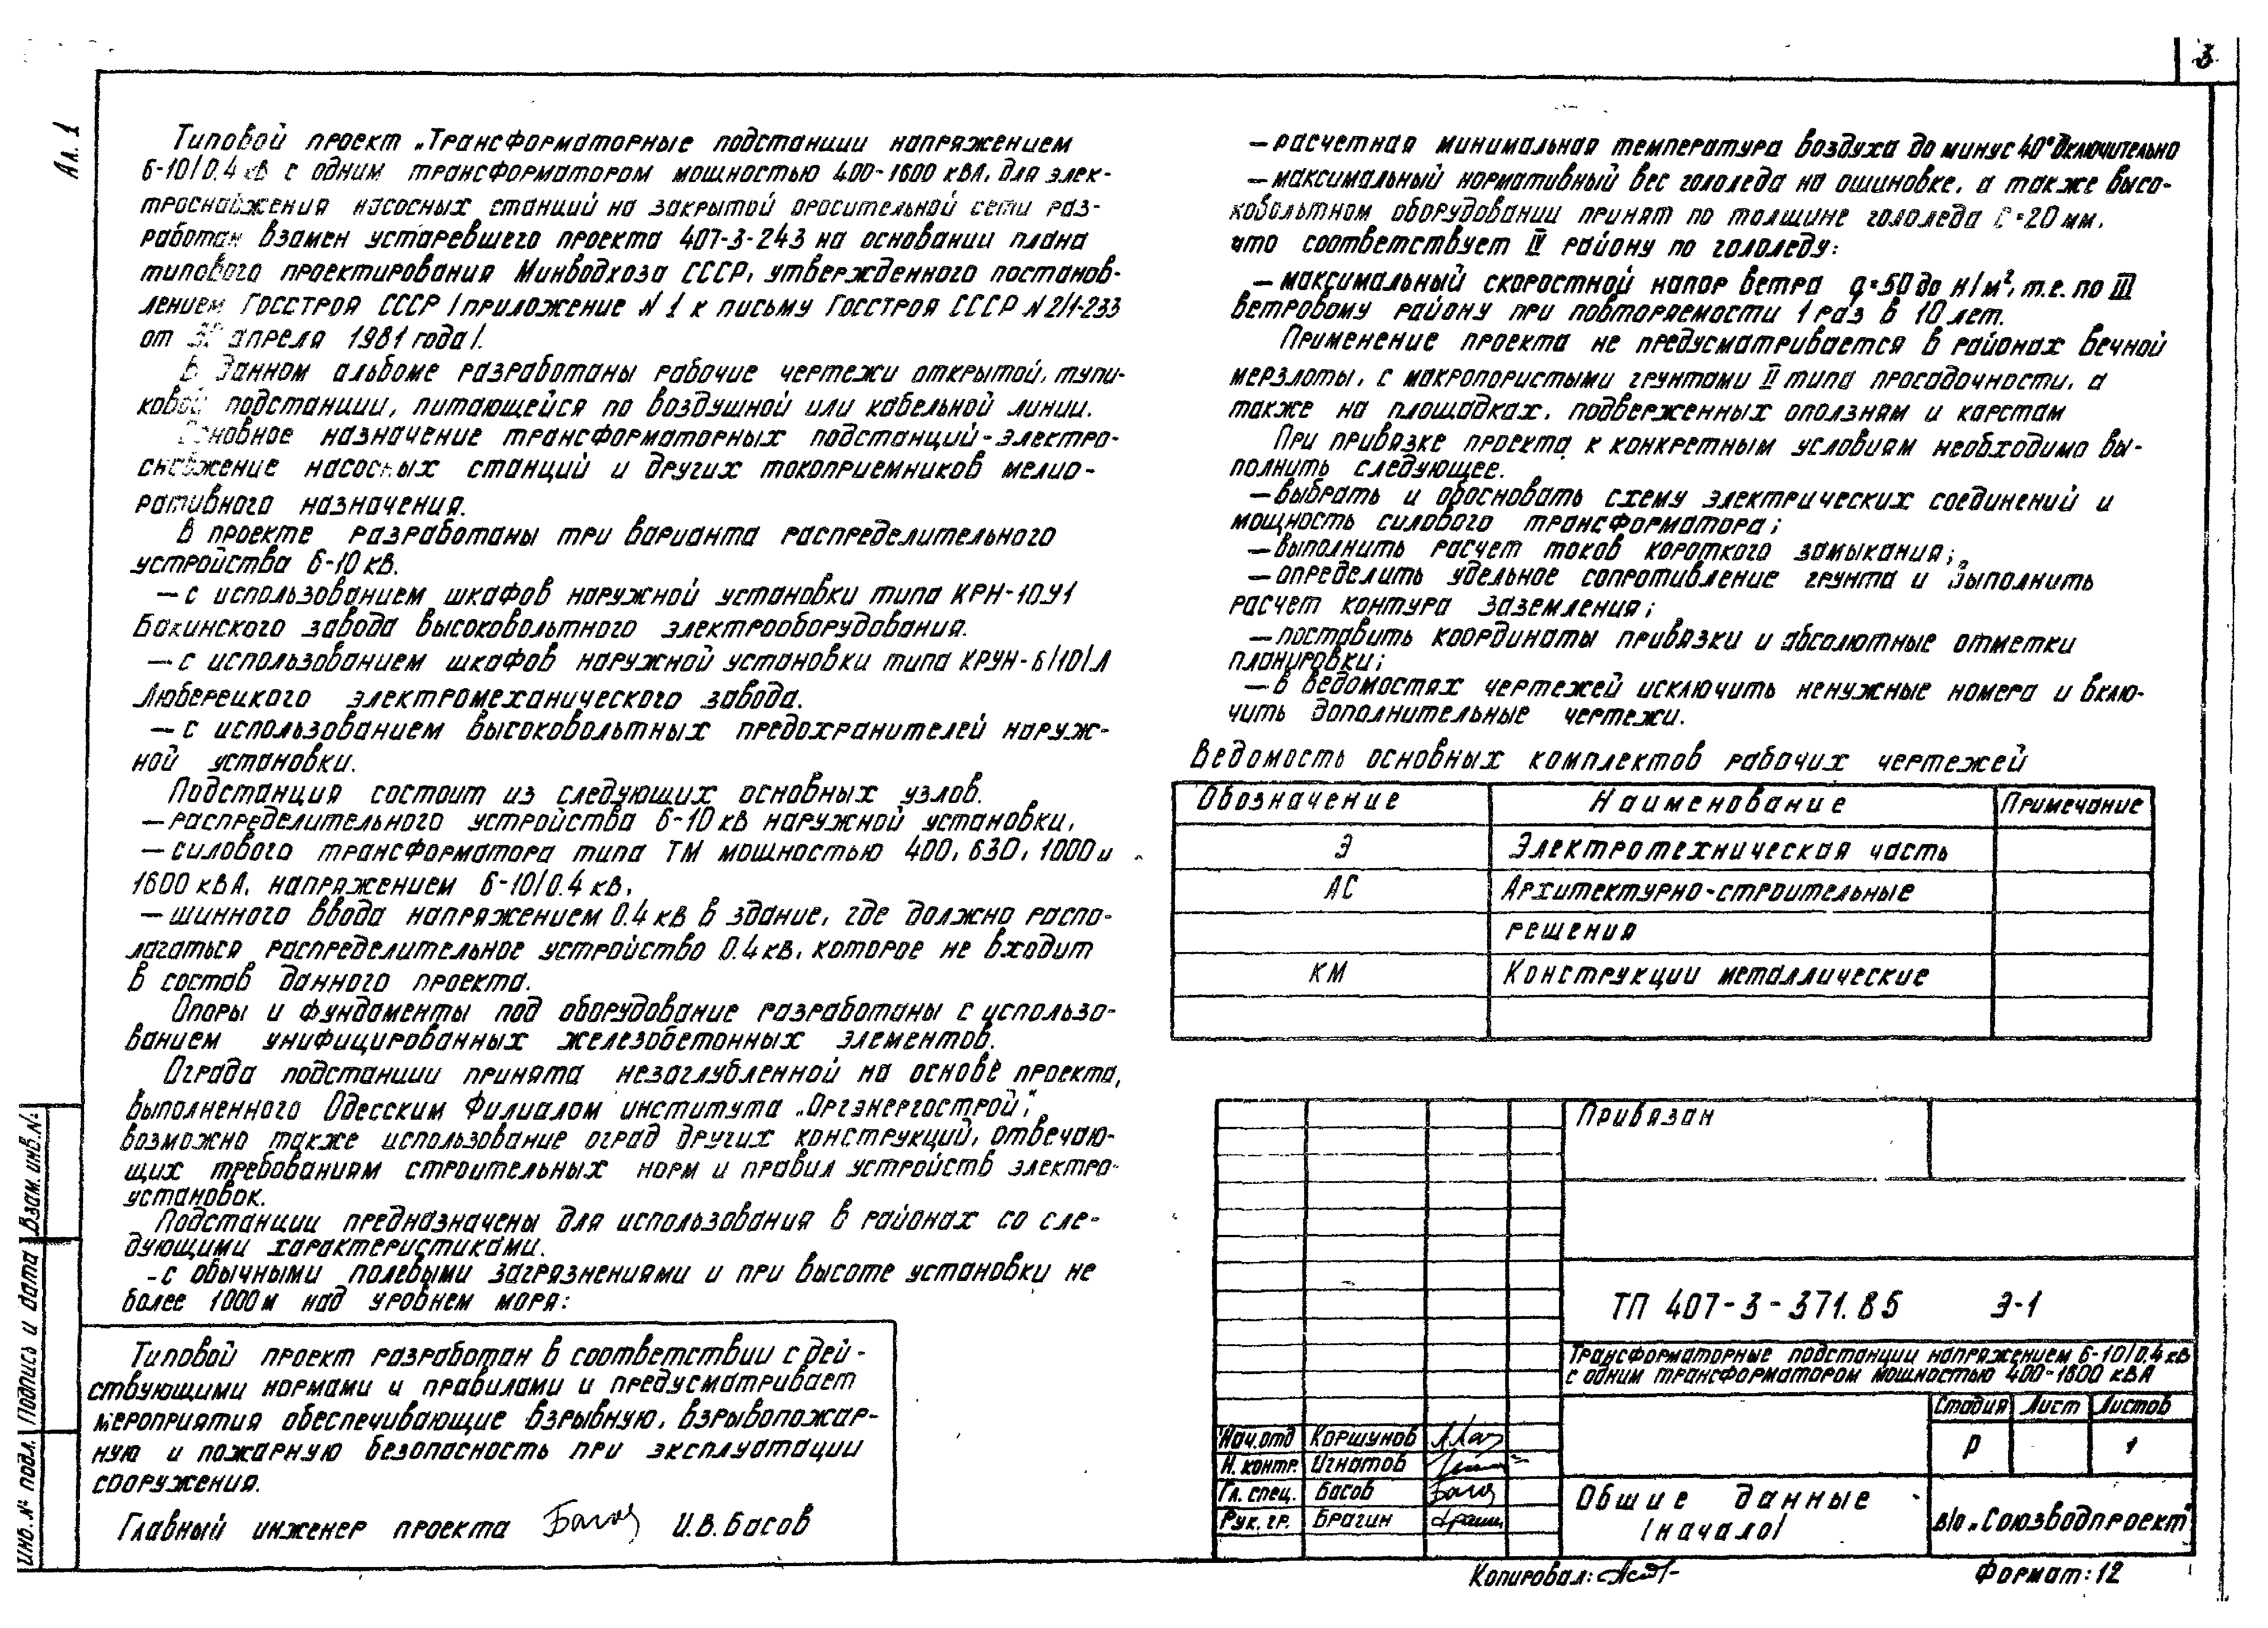 3
Ал. 1
Типовой проект „Трансформаторные подстанции напряжением
6-10/0.4 кв с одним трансформатором мощностью 400-1600 кВА, для элек-
троснабжения насосных станций на закрытой оросительной сети раз-
работан взамен устаревшего проекта 407-3-243 на основании плана
типового проектирования Минводхоза СССР, утвержденного постанов-
лением Госстроя СССР /приложение N 1 к письму Госстроя СССР N 2/1-233
от апреля 1981 года/.
В данном альбоме разработаны рабочие чертежи открытой, тупи-
ковой подстанции, питающейся по воздушной или кабельной линии.
Основное назначение трансформаторных подстанций-электро-
снабжение насосных станций и других токоприемников мелио-
ративного назначения.
В проекте разработаны три варианта распределительного
устройства 6-10 кв.
— с использованием шкафов наружной установки типа КРН-10У1
Бакинского завода высоковольтного электрооборудования.
— с использованием шкафов наружной установки типа КРУН-6/10/Л
Люберецкого электромеханического завода.
— с использованием высоковольтных предохранителей наруж-
ной установки.
Подстанция состоит из следующих основных узлов.
— распределительного устройства 6-10 кв наружной установки,
— силового трансформатора типа ТМ мощностью 400, 630, 1000 и
1600 кВА, напряжением 6-10/0.4 кв,
— шинного ввода напряжением 0.4 кв в здание, где должно распо-
лагаться распределительное устройство 0.4 кв, которое не входит
в состав данного проекта.
Опоры и фундаменты под оборудование разработаны с использо-
ванием унифицированных железобетонных элементов.
Ограда подстанции принята незаглубленной на основе проекта,
выполненного Одесским Филиалом института „Оргэнергострой",
возможно также использование оград других конструкций, отвечаю-
щих требованиям строительных норм и правил устройств электро-
установок.
Подстанции предназначены для использования в районах со сле-
дующими характеристиками.
- с обычными полевыми загрязнениями и при высоте установки не
более 1000 м над уровнем моря:
Типовой проект разработан в соответствии с дей-
ствующими нормами и правилами и предусматривает
мероприятия обеспечивающие взрывную, взрывопожар-
ную и пожарную безопасность при эксплуатации
сооружения.
Главный инженер проекта И.В. Басов
— расчетная минимальная температура воздуха до минус 40° включительно
— максимальный нормативный вес гололеда на ошиновке, а также высо-
ковольтном оборудовании принят по толщине гололеда С=20 мм,
что соответствует IV району по гололеду:
— максимальный скоростной напор ветра q=50 до н/м², т.е. по III
ветровому району при повторяемости 1 раз в 10 лет.
Применение проекта не предусматривается в районах вечной
мерзлоты, с макропористыми грунтами II типа просадочности, а
также на площадках, подверженных оползням и карстам
При привязке проекта к конкретным условиям необходимо вы-
полнить следующее.
— выбрать и обосновать схему электрических соединений и
мощность силового трансформатора;
— выполнить расчет токов короткого замыкания;
— определить удельное сопротивление грунта и выполнить
расчет контура заземления;
— поставить координаты привязки и абсолютные отметки
планировки;
— в ведомостях чертежей исключить ненужные номера и вклю-
чить дополнительные чертежи.
Ведомость основных комплектов рабочих чертежей
Обозначение Наименование Примечание
Э Электротехническая часть
АС Архитектурно-строительные
решения
КМ Конструкции металлические
Привязан
ТП 407-3-371.85 Э-1
Трансформаторные подстанции напряжением 6-10/0.4 кв
с одним трансформатором мощностью 400-1600 кВА
Стадия Лист Листов
Р 1
Нач.отд Коршунов
Н. контр. Игнатов
Гл. спец. Басов
Рук. гр. Брагин
Общие данные
/начало/
в/о „Союзводпроект"
Копировал:
Формат: 12
Инв. № подл. Подпись и дата Взам. инв. №